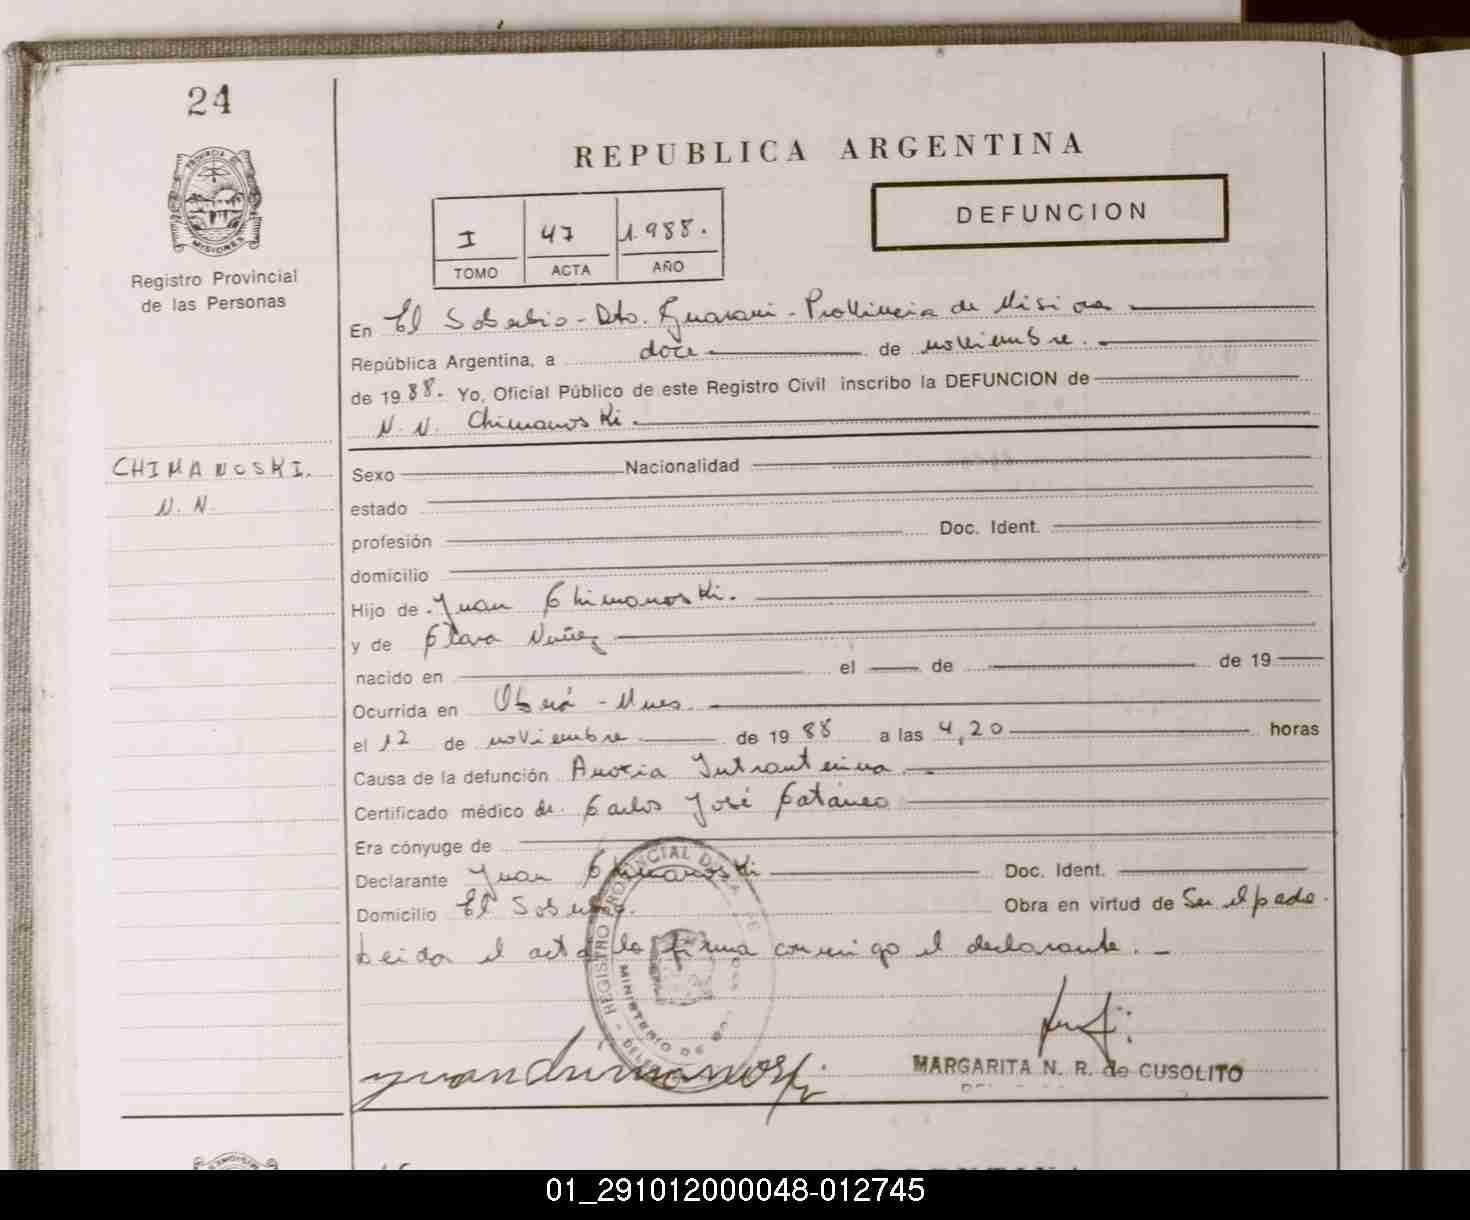 24
REPUBLICA ARGENTINA
DEFUNCION
I 47 1.988.
TOMO ACTA AÑO
PROVINCIA DE
MISIONES
Registro Provincial
de las Personas
En El Soberbio - Dto. Guarani - Provincia de Misiones
República Argentina, a doce de noviembre.
de 1988. Yo, Oficial Público de este Registro Civil inscribo la DEFUNCION de
N. N. Chimanoski.
CHIMANOSKI.
N. N.
Sexo Nacionalidad
estado
profesión Doc. Ident.
domicilio
Hijo de Juan Chimanoski.
y de Clara Nuñez
nacido en el de de 19
Ocurrida en Oberá - Mnes.
el 12 de noviembre de 1988 a las 4,20 horas
Causa de la defunción Anoxia Intrauterina
Certificado médico de. Carlos José Catáneo
Era cónyuge de
Declarante Juan Chimanoski Doc. Ident.
Domicilio El Soberbio. Obra en virtud de Ser el padre.
Leida el acta la firma conmigo el declarante. -
REGISTRO PROVINCIAL DE
MINISTERIO DE
Juan Chimanoski
MARGARITA N. R. de CUSOLITO
01_291012000048-012745